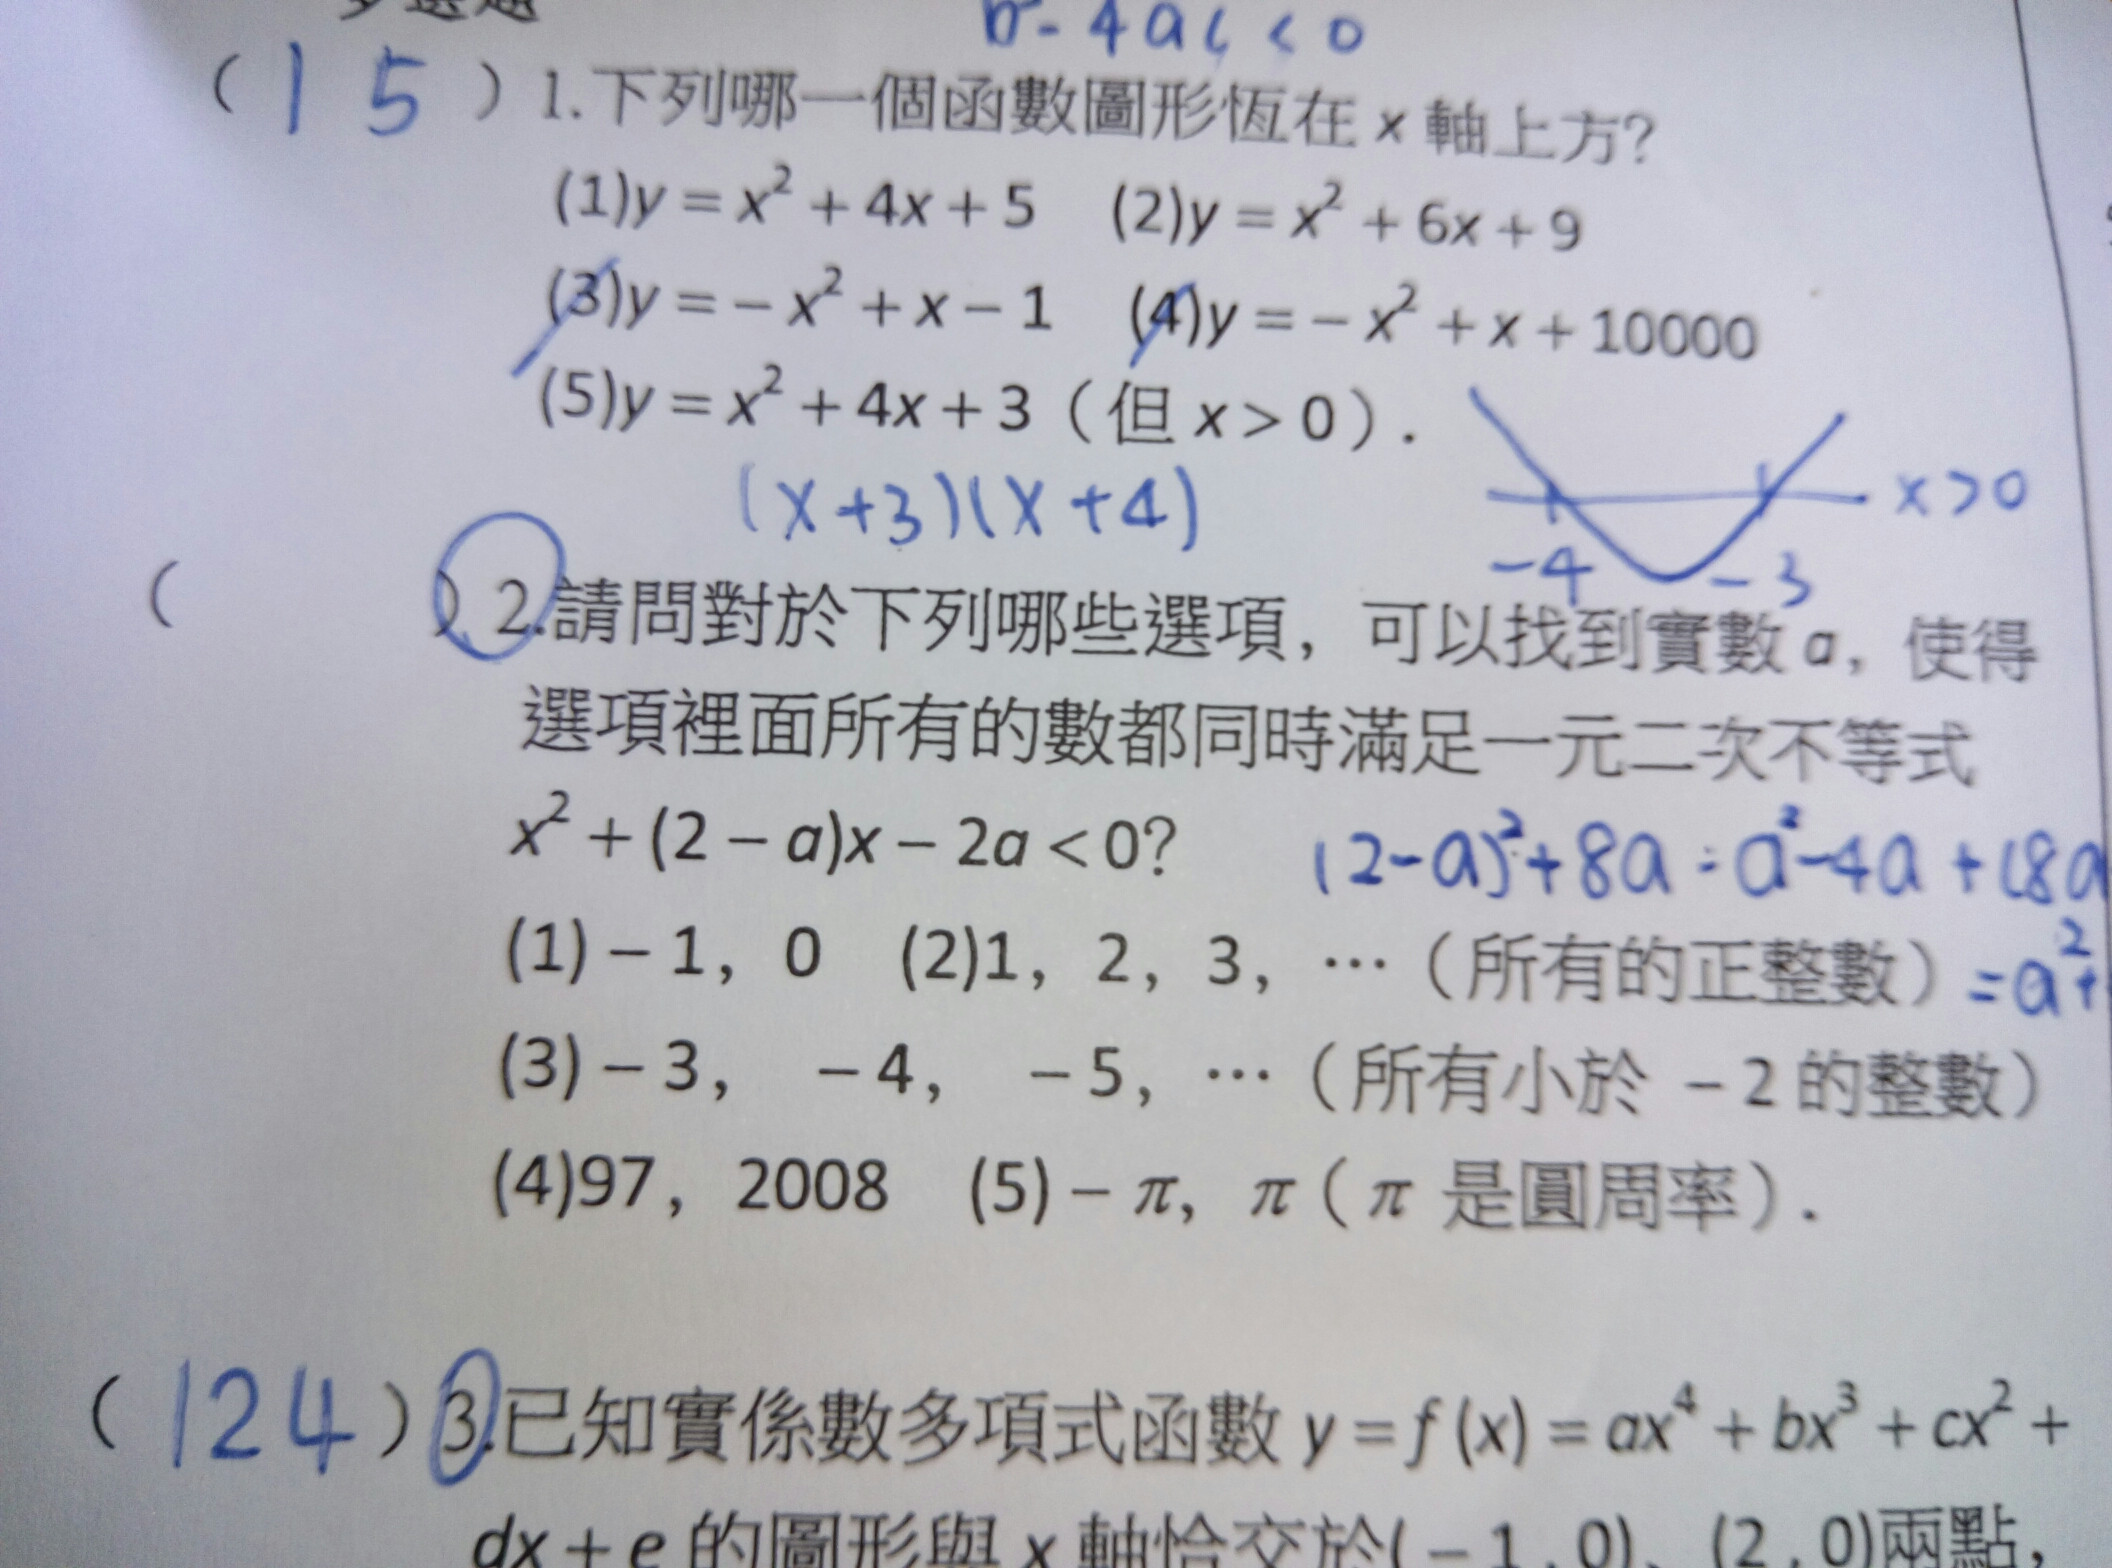 多選題
b²-4ac<0
(15)1.下列哪一個函數圖形恆在 x 軸上方?
(1)y=x²+4x+5 (2)y=x²+6x+9
(3)y=-x²+x-1 (4)y=-x²+x+10000
(5)y=x²+4x+3（但 x>0）.
(x+3)(x+4)
x>0
-4 -3
( )2.請問對於下列哪些選項，可以找到實數 a，使得
選項裡面所有的數都同時滿足一元二次不等式
x²+(2-a)x-2a<0?
(2-a)²+8a=a²-4a+(8a
(1)-1，0 (2)1，2，3，…（所有的正整數）
=a²+
(3)-3，-4，-5，…（所有小於 -2 的整數）
(4)97，2008 (5)-π，π（π 是圓周率）.
(124)3.已知實係數多項式函數 y=f(x)=ax⁴+bx³+cx²+
dx+e 的圖形與 x 軸恰交於(-1,0)、(2,0)兩點，